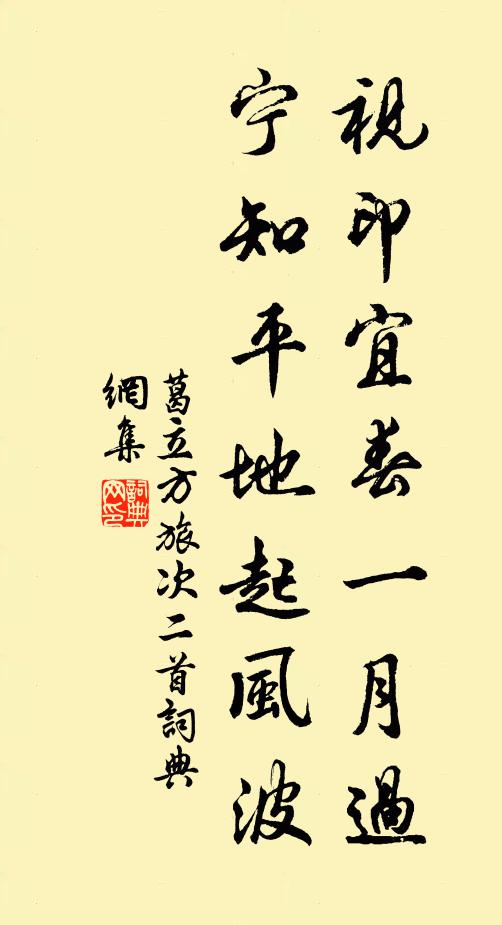 視印宜春一月過
宁知平地起風波
葛立方旅次二首詞典
網集
詞典網印